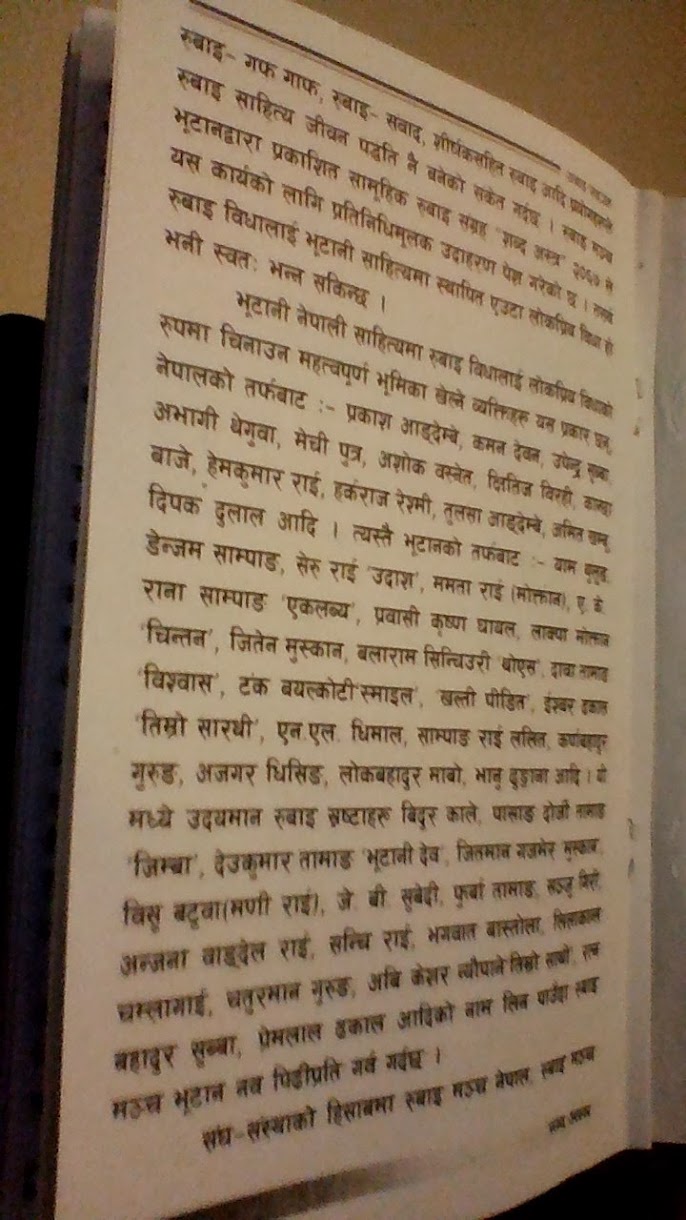 रुबाइ- गफ गाफ, रुबाइ- सवाद, शीर्षकसहित रुबाइ आदि प्रयोगहरुले
रुबाइ साहित्य जीवन पद्धति नै बनेको सकेत गर्दछ । रुबाइ मञ्च
भूटानद्वारा प्रकाशित सामूहिक रुबाइ संग्रह "शब्द अस्त्र" २०६७ ले
यस कार्यको लागि प्रतिनिधिमूलक उदाहरण पेश गरेको छ ।
रुबाइ विधालाई भूटानी साहित्यमा स्थापित एउटा लोकप्रिय विधा हो
भनी स्वतः भन्न सकिन्छ ।
भूटानी नेपाली साहित्यमा रुबाइ विधालाई लोकप्रिय विधाको
रुपमा चिनाउन महत्वपूर्ण भूमिका खेल्ने व्यक्तिहरु यस प्रकार छन्,
नेपालको तर्फबाट :- प्रकाश आङ्देम्बे, कमन देवन, उपेन्द्र सुब्बा,
अभागी थेगुवा, मेची पुत्र, अशोक वस्नेत, क्षितिज विरही, कान्छा
बाजे, हेमकुमार राई, हर्कराज रेश्मी, तुलसा आङ्देम्बे, अमित
दिपक दुलाल आदि । त्यस्तै भूटानको तर्फबाट :- याम
डेन्जम साम्पाङ, सेरु राई 'उदाश', ममता राई (मोक्तान), ए. के.
राना साम्पाङ 'एकलब्य', प्रवासी कृष्ण घायल, लाक्पा मोक्तान
'चिन्तन', जितेन मुस्कान, बलाराम सिन्चिउरी 'थोएस', दावा तामाङ
'विश्वास', टंक बयल्कोटी'स्माइल', 'खल्ती पीडित', ईश्वर ढकाल
'तिम्रो सारथी', एन.एल. धिमाल, साम्पाङ राई ललित, कर्णबहादुर
गुरुङ, अजगर धिसिङ, लोकबहादुर माबो, भानु ढुङ्गाना आदि । यी
मध्ये उदयमान रुबाइ स्रष्टाहरू बिदुर काले, पासाङ दोर्जी तामाङ
'जिम्बा', देउकुमार तामाङ 'भूटानी देव', जितमान गजमेर मुस्कान,
विसु बटुवा(मणी राई), जे. बी. सुबेदी, फुर्बा तामाङ, सञ्जु गिरी,
अन्जना वाङ्देल राई, सन्चि राई, भगवात बास्तोला, लिलाकाल
चम्लागाई, चतुरमान गुरुङ, अबि केशर न्यौपाने'तिम्रो साथी', रत्न
बहादुर सुब्बा, प्रेमलाल ढकाल आदिको नाम लिन पाउँदा रुबाइ
मञ्च भूटान नव पिढीप्रति गर्व गर्दछ ।
संघ-संस्थाको हिसाबमा रुबाइ मञ्च नेपाल, रुबाइ मञ्च